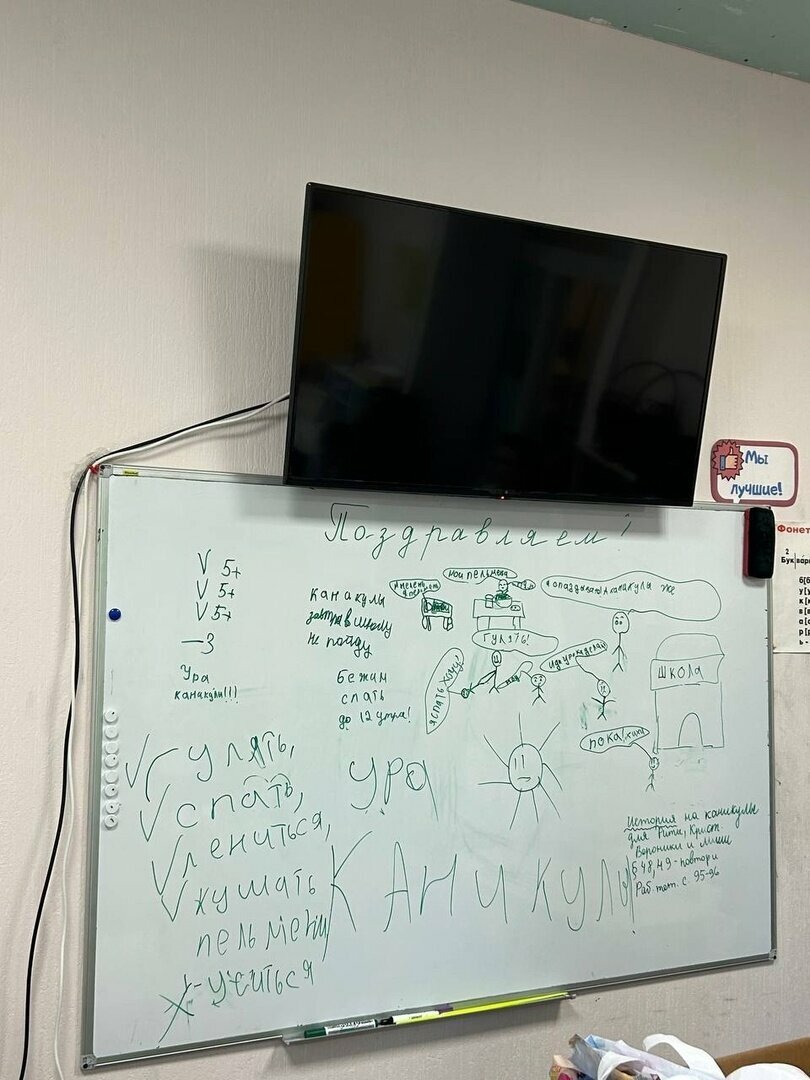 Мы
лучшие!
Поздравляем!
V 5+
V 5+
V 5+
-3
Ура
каникулы!!!
Каникулы
завтра в школу
не пойду
бежим
спать
до 12 утра!
мои пельмени
я опаздываю на каникулы же
ГУЛЯТЬ!
Я СПАТЬ ХОЧУ!
ШКОЛА
ПОКА!
V гулять,
V спать,
V лениться,
V кушать
пельмени
X - учиться
ура
КАНИКУЛЫ
История на каникулы
для Риты, Крист.
Вероники и Миши
§ 48, 49 - повтори
Раб. тет. с. 95-96
Фонет
2
Букварь